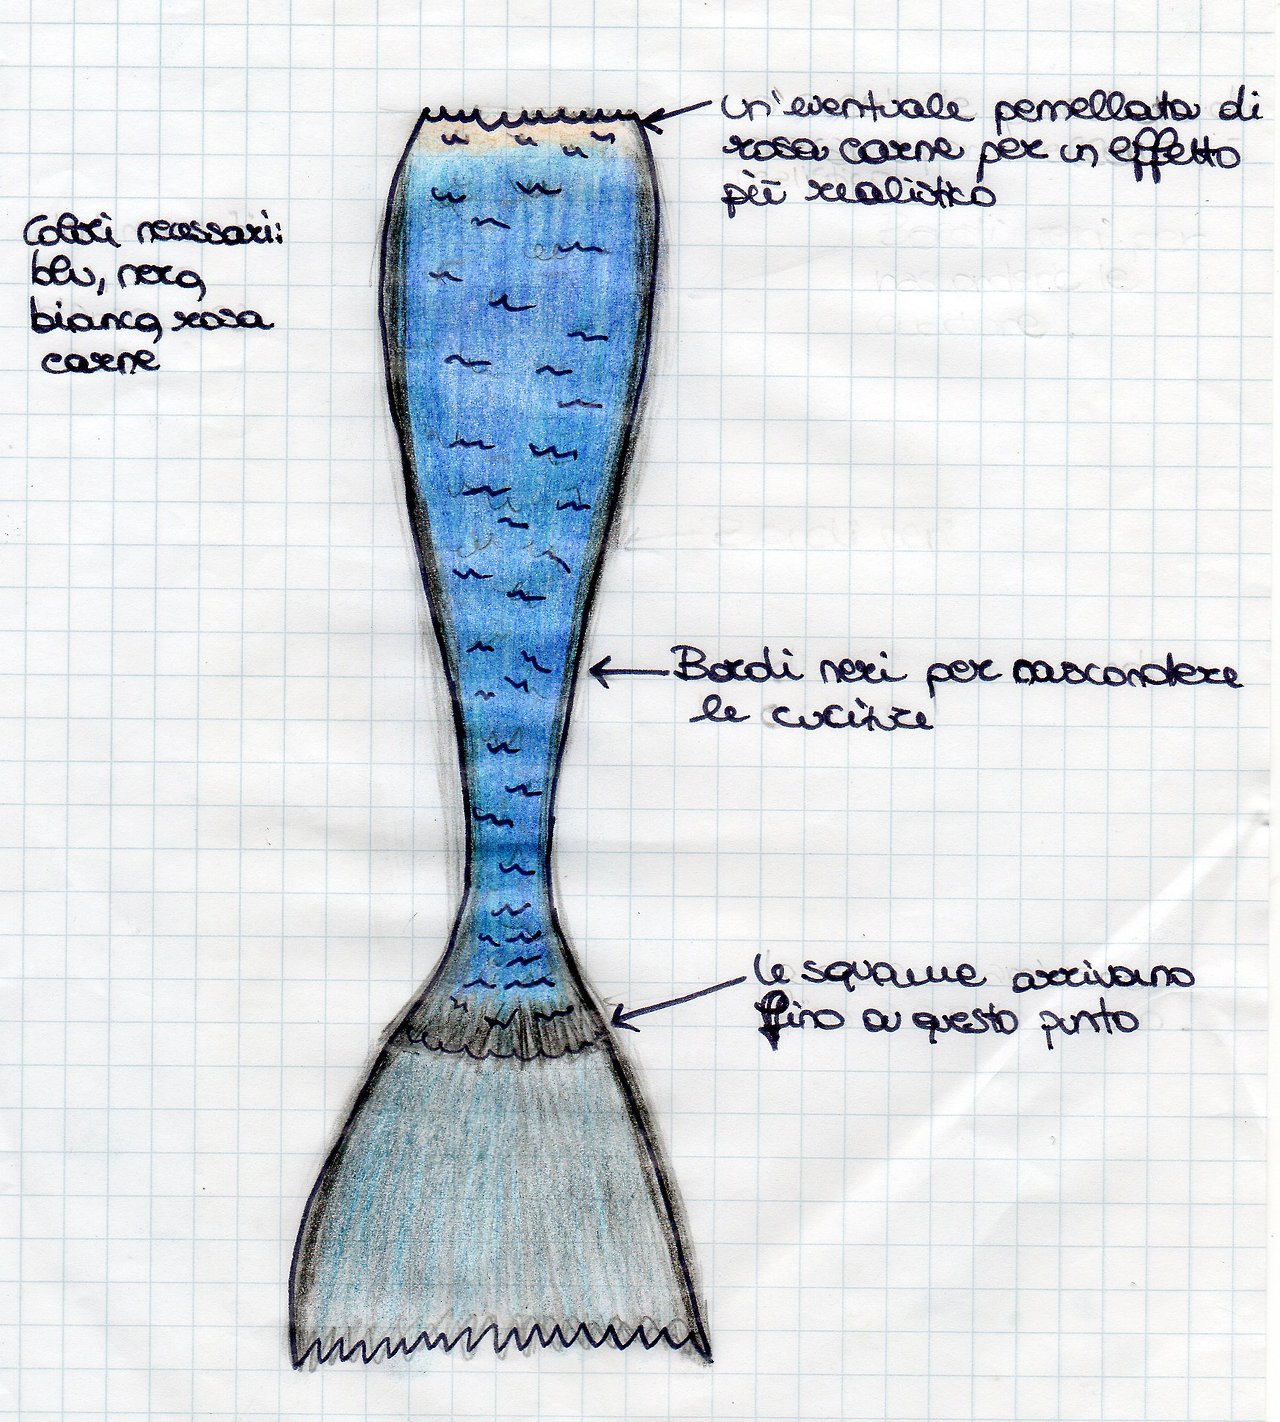 un'eventuale pennellata di
rosa carne per un effetto
più realistico
Colori necessari:
blu, nero,
bianco, rosa
carne
Bordi neri per nascondere
le cuciture
le squame arrivano
fino a questo punto